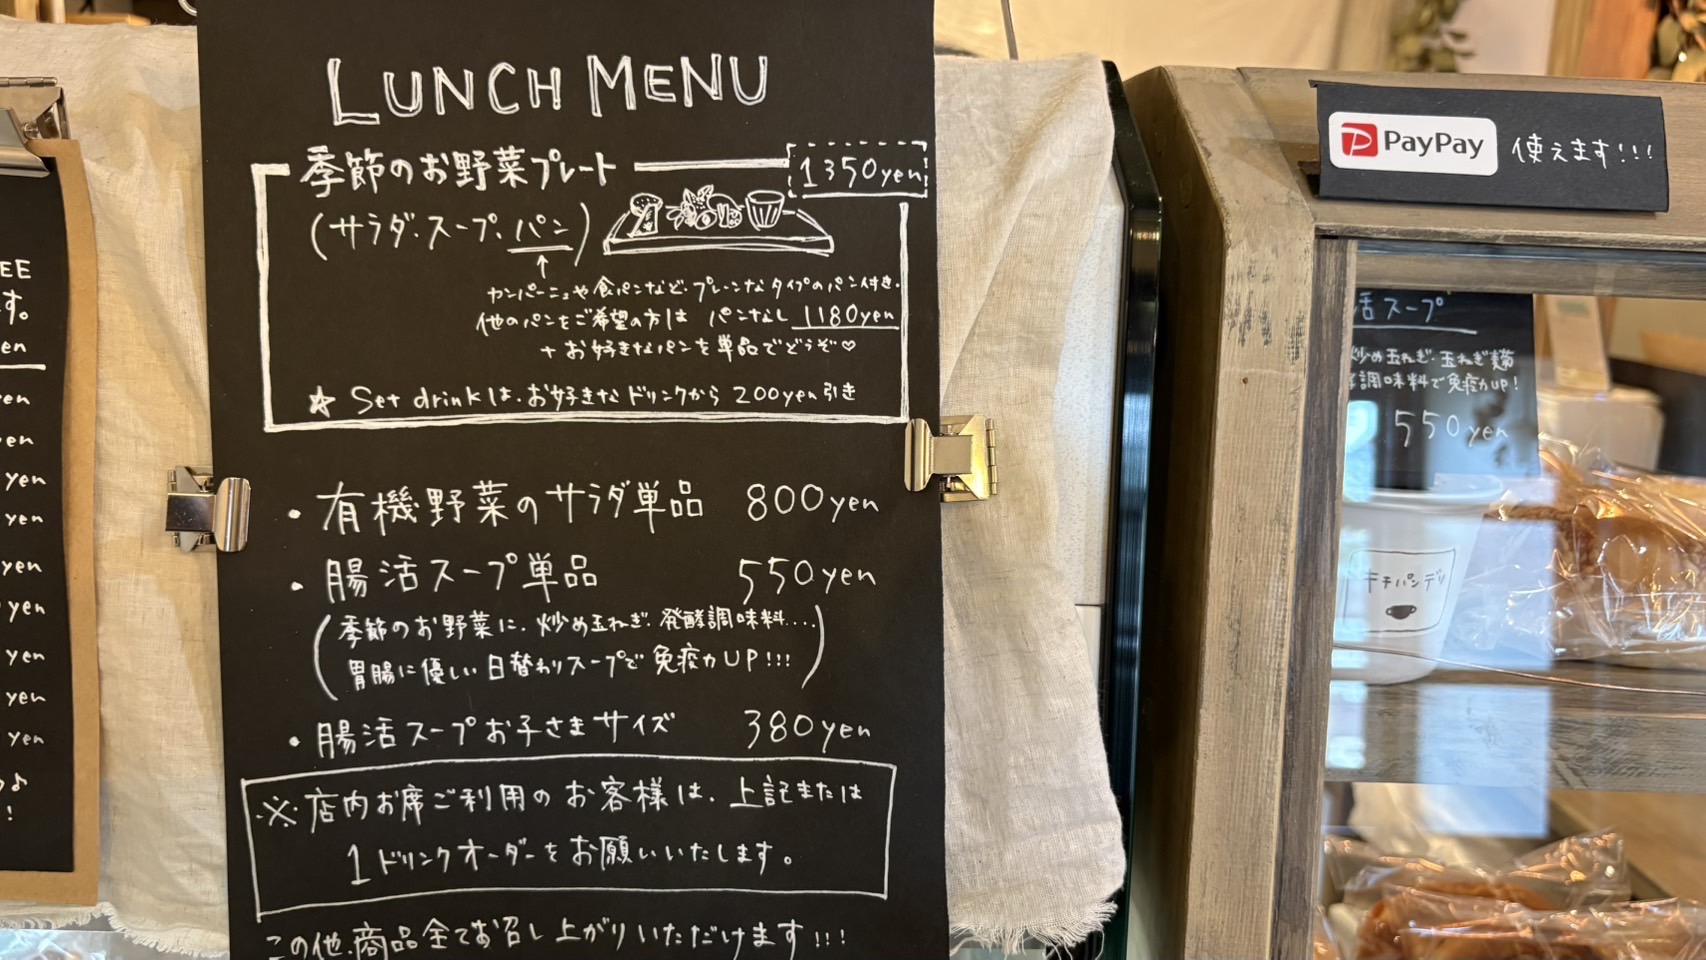 LUNCH MENU
季節のお野菜プレート 1350yen
(サラダ・スープ・パン)
↑
カンパーニュや食パンなど・プレーンなタイプのパン付き・
他のパンをご希望の方は パンなし 1180yen
+お好きなパンを単品でどうぞ♡
☆ Set drinkは、お好きなドリンクから 200yen引き
・有機野菜のサラダ単品 800yen
・腸活スープ単品 550yen
(季節のお野菜に、炒め玉ねぎ、発酵調味料...
胃腸に優しい日替わりスープで免疫力UP!!!)
・腸活スープお子さまサイズ 380yen
※店内お席ご利用のお客様は、上記または
1ドリンクオーダーをお願いいたします。
この他、商品全てお召し上がりいただけます!!!
EE
す。
en
en
en
yen
yen
yen
yen
yen
yen
yen
♪
!
PayPay 使えます!!!
活スープ
炒め玉ねぎ・玉ねぎ麹
調味料で免疫力UP!
550yen
キチパンデリ